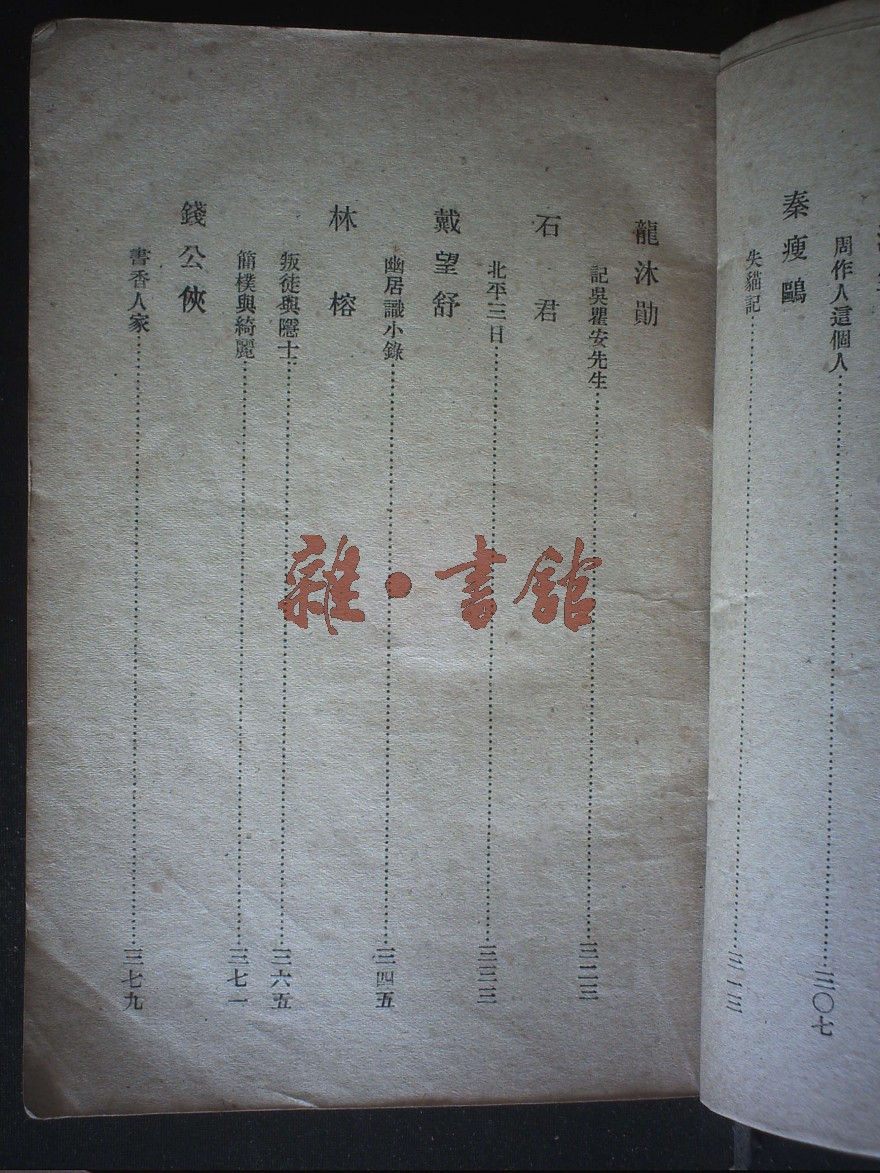 周作人這個人……三〇七
秦瘦鷗
失貓記……三一三
龍沐勛
記吳瞿安先生……三二三
石君
北平三日……三三三
戴望舒
幽居識小錄……三四五
林榕
叛徒與隱士……三六五
簡樸與綺麗……三七一
錢公俠
書香人家……三七九
雜·書館